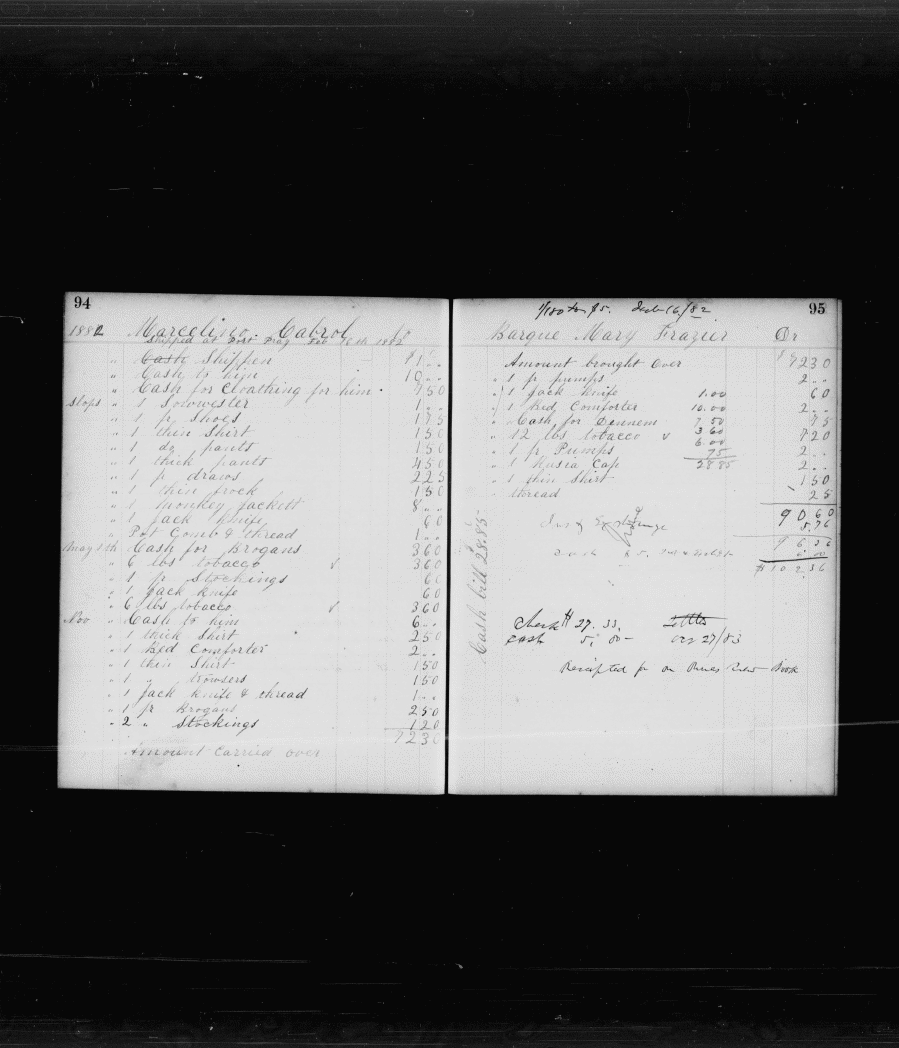 94
1882 Marcelino Cabrol
Shipped at Port Feb 1882
" Cash Shippen $1 ..
" Cash to him 10 ..
" Cash for Cloathing for him 7 50
Slops " 1 Souwester 1 ..
" 1 pr Shoes 1 75
" 1 thin Shirt 1 50
" 1 do pants 1 50
" 1 thick pants 4 50
" 1 pr draws 2 25
" 1 thin frock 1 50
" 1 monkey jackett 8 ..
" 1 jack knife 60
" Pot Comb & thread 1 ..
May " Cash for Brogans 3 60
" 6 lbs tobacco √ 3 60
" 1 pr Stockings 60
" 1 jack knife 60
" 6 lbs tobacco √ 3 60
Nov " Cash to him 6 ..
" 1 thick Shirt 2 50
" 1 Red Comforter 2 ..
" 1 thin Shirt 1 50
" 1 " trowsers 1 50
" 1 jack knife & thread 1 ..
" 1 pr Brogans 2 50
" 2 " Stockings 1 20
72 30
Amount Carried over
1/180 to $5. 16/82
95
Barque Mary Frazier Dr
Amount brought over $ 72 30
" 1 pr pumps 2 ..
" 1 Jack knife 1.00 60
" 1 Red Comforter 10.00 2 ..
" Cash for Dennem 7 50 75
" 12 lbs tobacco √ 3 60 7 20
6.00
" 1 pr Pumps 75 2 ..
" 1 Rusia Cap 28 85 2 ..
" 1 thin Shirt 1 50
" thread 25
90 60
5.76
Ins & Exchange
96 36
6 00
$ 102 36
Cash bill 28.85
Check 27.33. Settled
Cash 5, 00 - Oct 27/83
Receipted for on Book